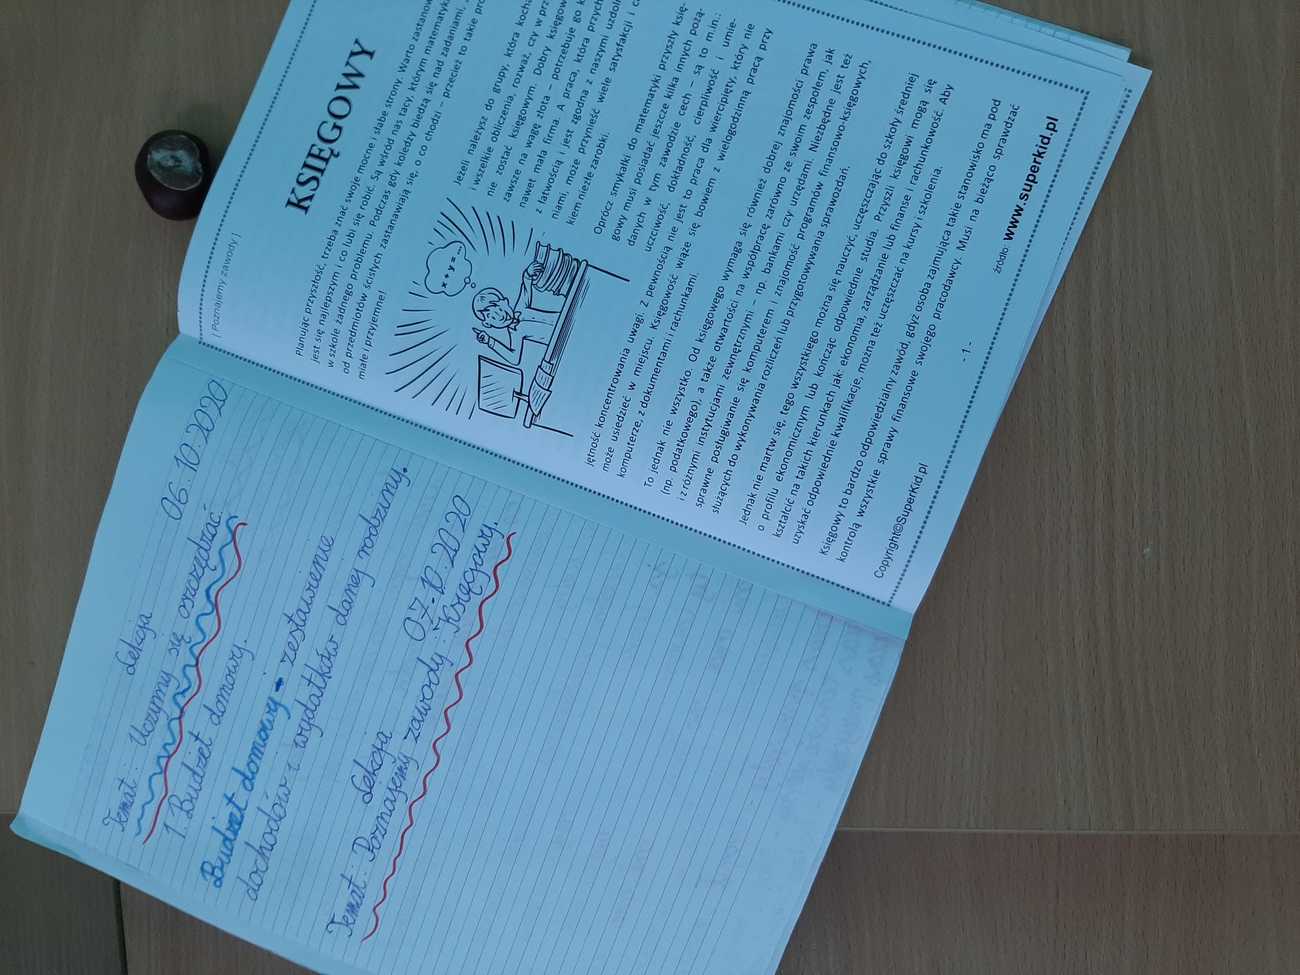 Lekcja 06.10.2020
Temat: Uczymy się oszczędzać.
1. Budżet domowy.
Budżet domowy - zestawienie
dochodów i wydatków danej rodziny.
Lekcja 07.10.2020
Temat: Poznajemy zawody: Księgowy.
| Poznajemy zawody |
KSIĘGOWY
Planując przyszłość, trzeba znać swoje mocne i słabe strony. Warto
jest się najlepszym i co lubi się robić. Są wśród nas tacy, którym
w szkole żadnego problemu. Podczas gdy koledzy biedzą się nad zadaniami,
od przedmiotów ścisłych zastanawiają się, o co chodzi – przecież to takie
miałe i przyjemne!
x+y=...
Jeżeli należysz do grupy, która
i wszelkie obliczenia, rozważ, czy w
nie zostać księgowym. Dobry
zawsze na wagę złota – potrzebuje go
nawet mała firma. A praca, która
z łatwością i jest zgodna z naszymi
niami, może przynieść wiele satysfakcji i
kiem niezłe zarobki.
Oprócz smykałki do matematyki przyszły księ-
gowy musi posiadać jeszcze kilka innych pożą-
danych w tym zawodzie cech – są to m.in.:
uczciwość, dokładność, cierpliwość i umie-
jętność koncentrowania uwagi. Z pewnością nie jest to praca dla wiercipięty, który nie
może usiedzieć w miejscu. Księgowość wiąże się bowiem z wielogodzinną pracą przy
komputerze, z dokumentami i rachunkami.
To jednak nie wszystko. Od księgowego wymaga się również dobrej znajomości prawa
(np. podatkowego), a także otwartości na współpracę zarówno ze swoim zespołem, jak
i z różnymi instytucjami zewnętrznymi – np. bankami czy urzędami. Niezbędne jest też
sprawne posługiwanie się komputerem i znajomość programów finansowo-księgowych,
służących do wykonywania rozliczeń lub przygotowywania sprawozdań.
Jednak nie martw się, tego wszystkiego można się nauczyć, uczęszczając do szkoły średniej
o profilu ekonomicznym lub kończąc odpowiednie studia. Przyszli księgowi mogą się
kształcić na takich kierunkach jak: ekonomia, zarządzanie lub finanse i rachunkowość. Aby
uzyskać odpowiednie kwalifikacje, można też uczęszczać na kursy i szkolenia.
Księgowy to bardzo odpowiedzialny zawód, gdyż osoba zajmująca takie stanowisko ma pod
kontrolą wszystkie sprawy finansowe swojego pracodawcy. Musi na bieżąco sprawdzać
Copyright©SuperKid.pl
- 1 -
źródło: www.superkid.pl